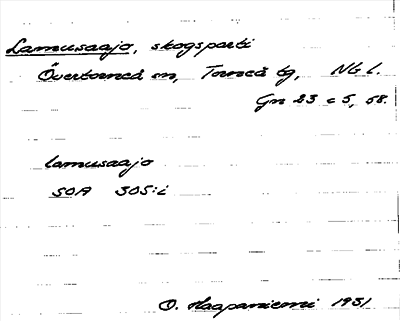 Lamusaajo, skogsparti
Övertorneå sn, Torneå tg, NbL.
Gn 23 c 5, 58.
lamusaajo
SOA 305:2
O. Haapaniemi 1931